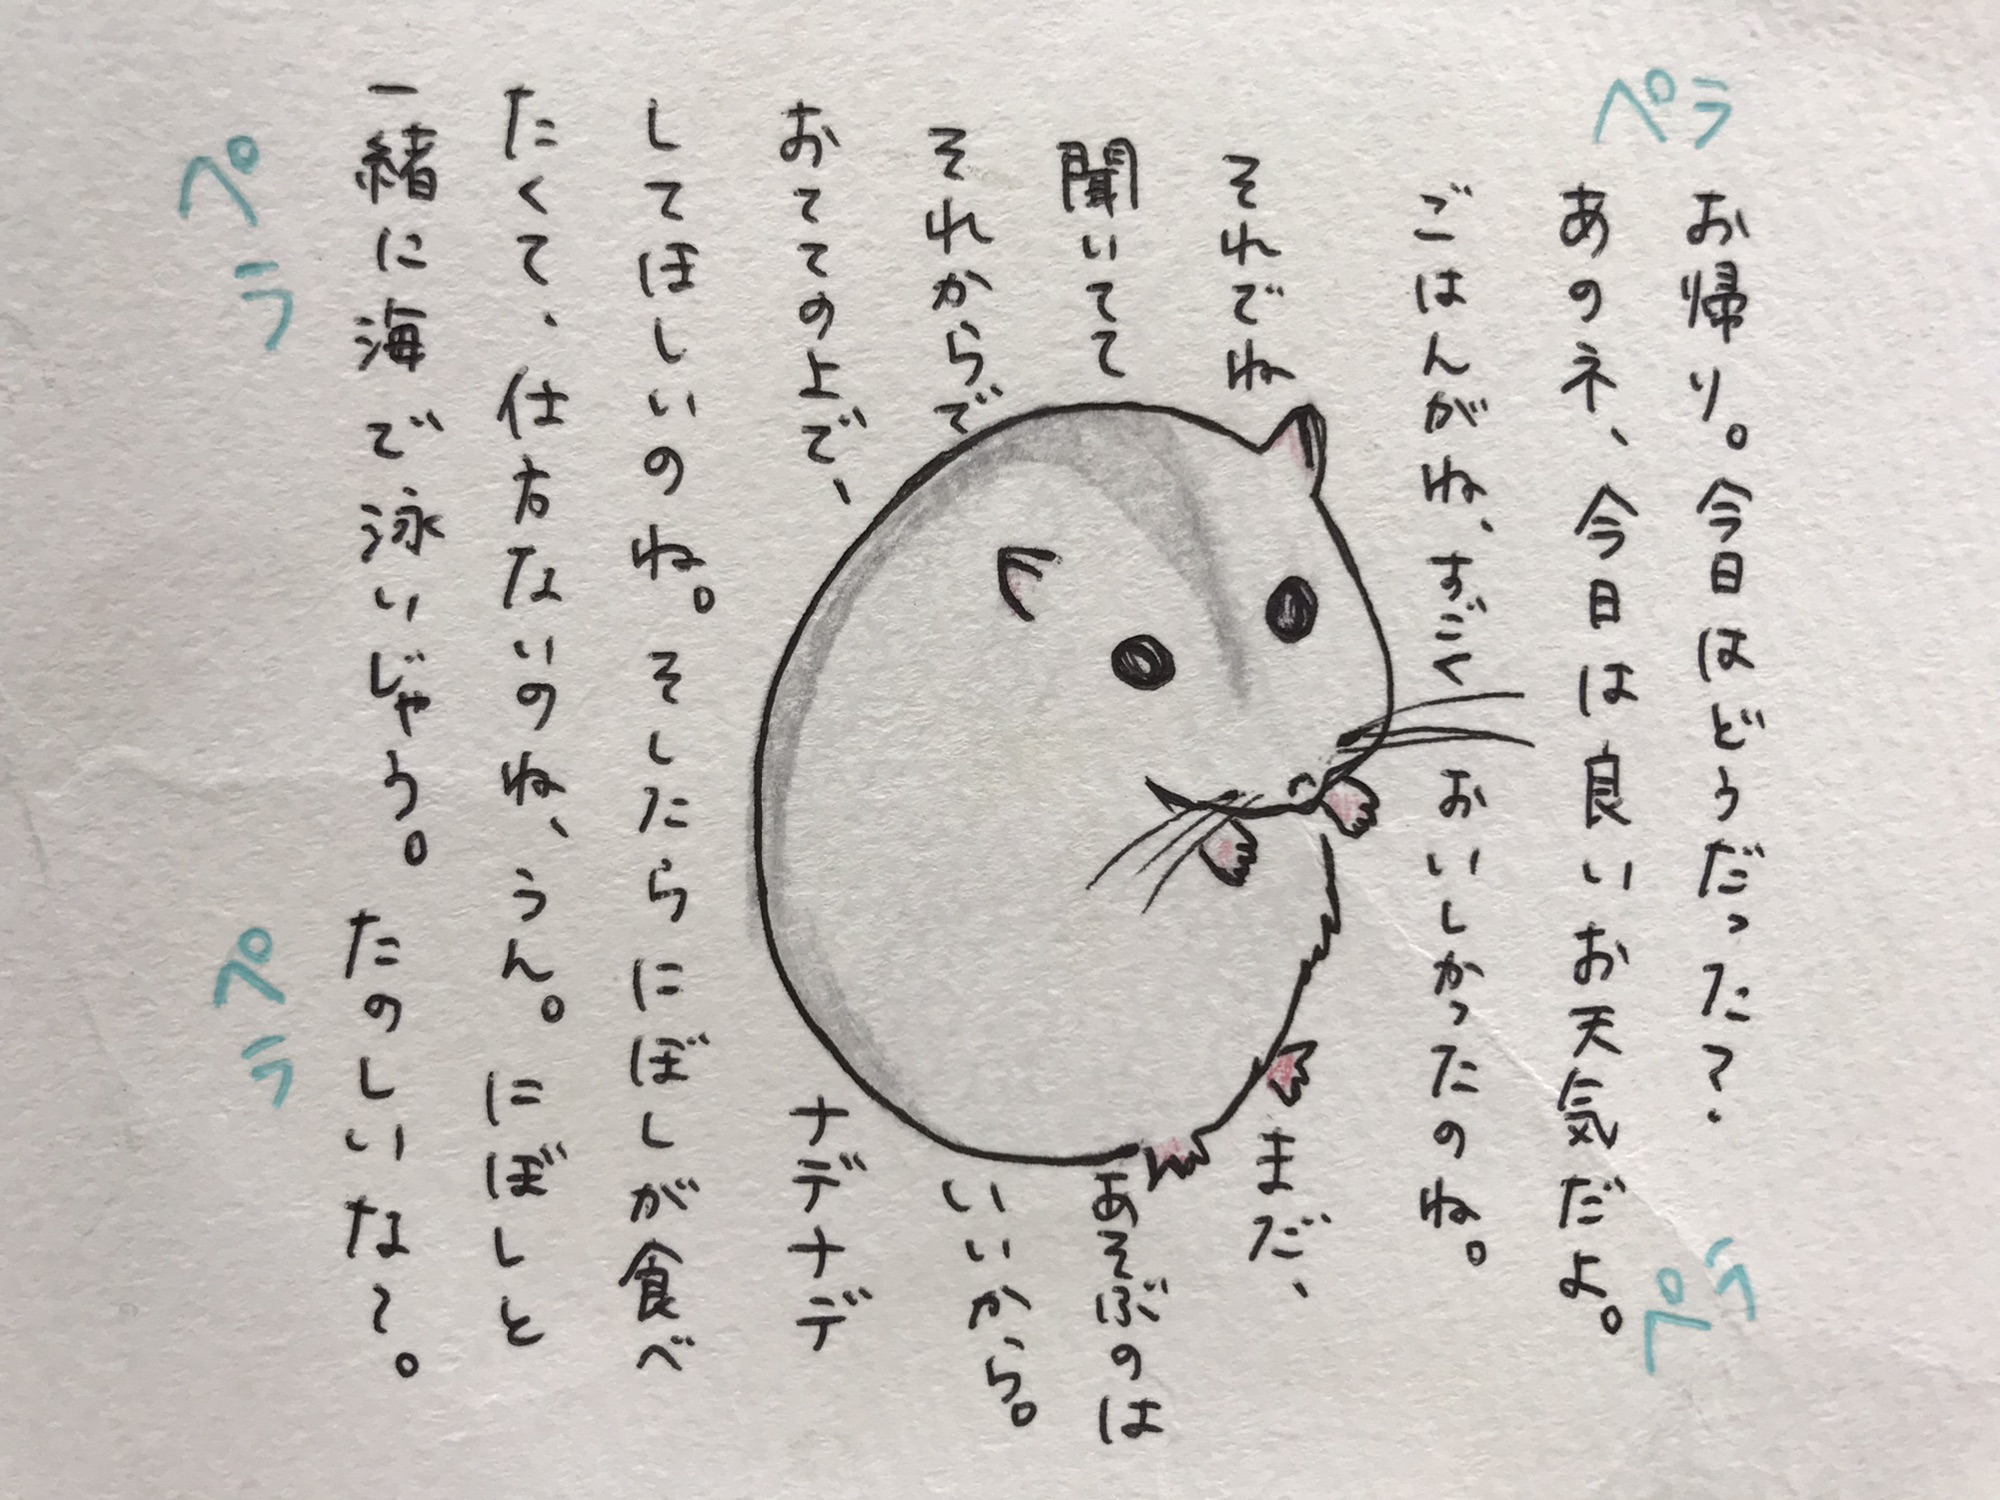 ペラ
お帰り。今日はどうだった?
あのネ、今日は良いお天気だよ。
ペラ
ごはんがね、すごく おいしかったのね。
それでね まだ、
聞いてて あそぶのは
それからで いいから。
おてての上で、 ナデナデ
してほしいのね。そしたらにぼしが食べ
たくて、仕方ないのね、うん。にぼしと
一緒に海で泳いじゃう。たのしいな〜。
ペラ
ペラ